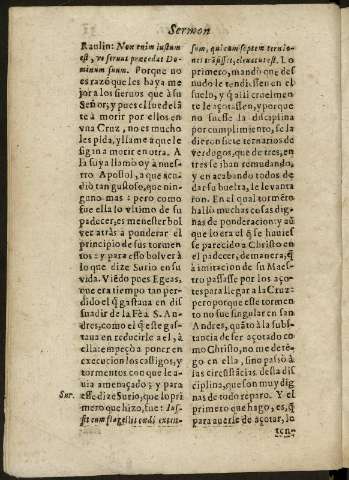 Sermon
Raulin: Non enim iustum
est, vt seruus præcedat Do-
minum suum. Porque no
es razō que les haya me
jor a los sieruos que à su
Señor; y pues el fue delā
te à morir por ellos en
vna Cruz, no es mucho
les pida, y llame a que le
sigan a morir en otra. A
la suya llamó oy à nues-
tro Apostol, a que acu-
dió tan gustoso, que nin-
guno mas: pero como
fue ella lo vltimo de su
padecer, es menester bol
ver atràs a ponderar el
principio de sus tormen
tos: y para esso bolver à
lo que dize Surio en su
vida. Viēdo pues Egeas,
que era tiempo tan per-
dido el q̃ gastava en dis
suadir de la Fè à S. An-
dres, como el q̃ èste gas-
tava en reducirle a el, à
ella: empeçò a poner en
execucion los castigos, y
tormentos con que le a-
uia amenaçado; y para
esse dize Surio, que lo pri
mero que hizo, fue: Ius-
Sur.
sit eum flagellis cædi exten-
sum, qui cum septem ternio-
nes trāsisset, eleuatus est. Lo
primero, mandò que des
nudo le tendiessen en el
suelo, y q̃ alli cruelmente
le açotassen, y porque
no fuesse la disciplina
por cumplimiento, se la
dieron siete ternarios de
verdogos, que de tres, en
tres se iban remudando,
y en acabando todos de
dar su buelta, le levanta
ron. En el qual tormēto
hallò muchas cosas dig-
nas de ponderacion: y aũ
que lo era el q̃ se hauies
se parecido a Christo en
el padecer, de manera; q̃
à imitacion de su Maes-
tro passasse por los aço-
tes para llegar a la Cruz-
pero porque esse tormen
to no fue singular en san
Andres, quãto à la subs-
tancia de ser açotado co
mo Christo, no me dete-
go en ella, sino passo à
las circūstācias desta di
ciplina, que son muy dig
nas de todo reparo. Y el
primero que hago, es, q̃
para auerle de açotar, le
ten-